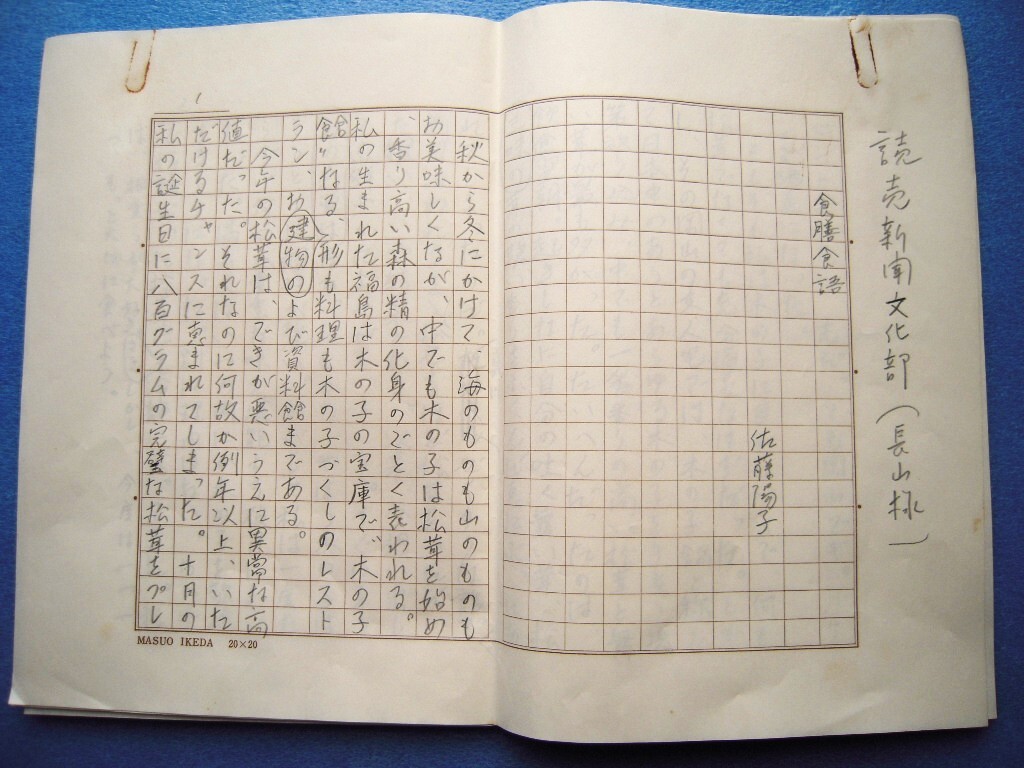 読売新聞文化部（長山様）
食膳食語
佐藤陽子
秋から冬にかけて、海のものも山のものも
お美味しくなるが、中でも木の子は松茸を始め
、香り高い森の精の化身のごとく表われる。
私の生まれた福島は木の子の宝庫で、木の子
館なる、形も料理も木の子づくしのレスト
ラン、お建物のよび資料館まである。
今年の松茸は、できが悪いうえに異常な高
値だった。それなのに何故か例年以上、いた
だけるチャンスに恵まれてしまった。十月の
私の誕生日に八百グラムの完璧な松茸をプレ
1
MASUO IKEDA 20×20